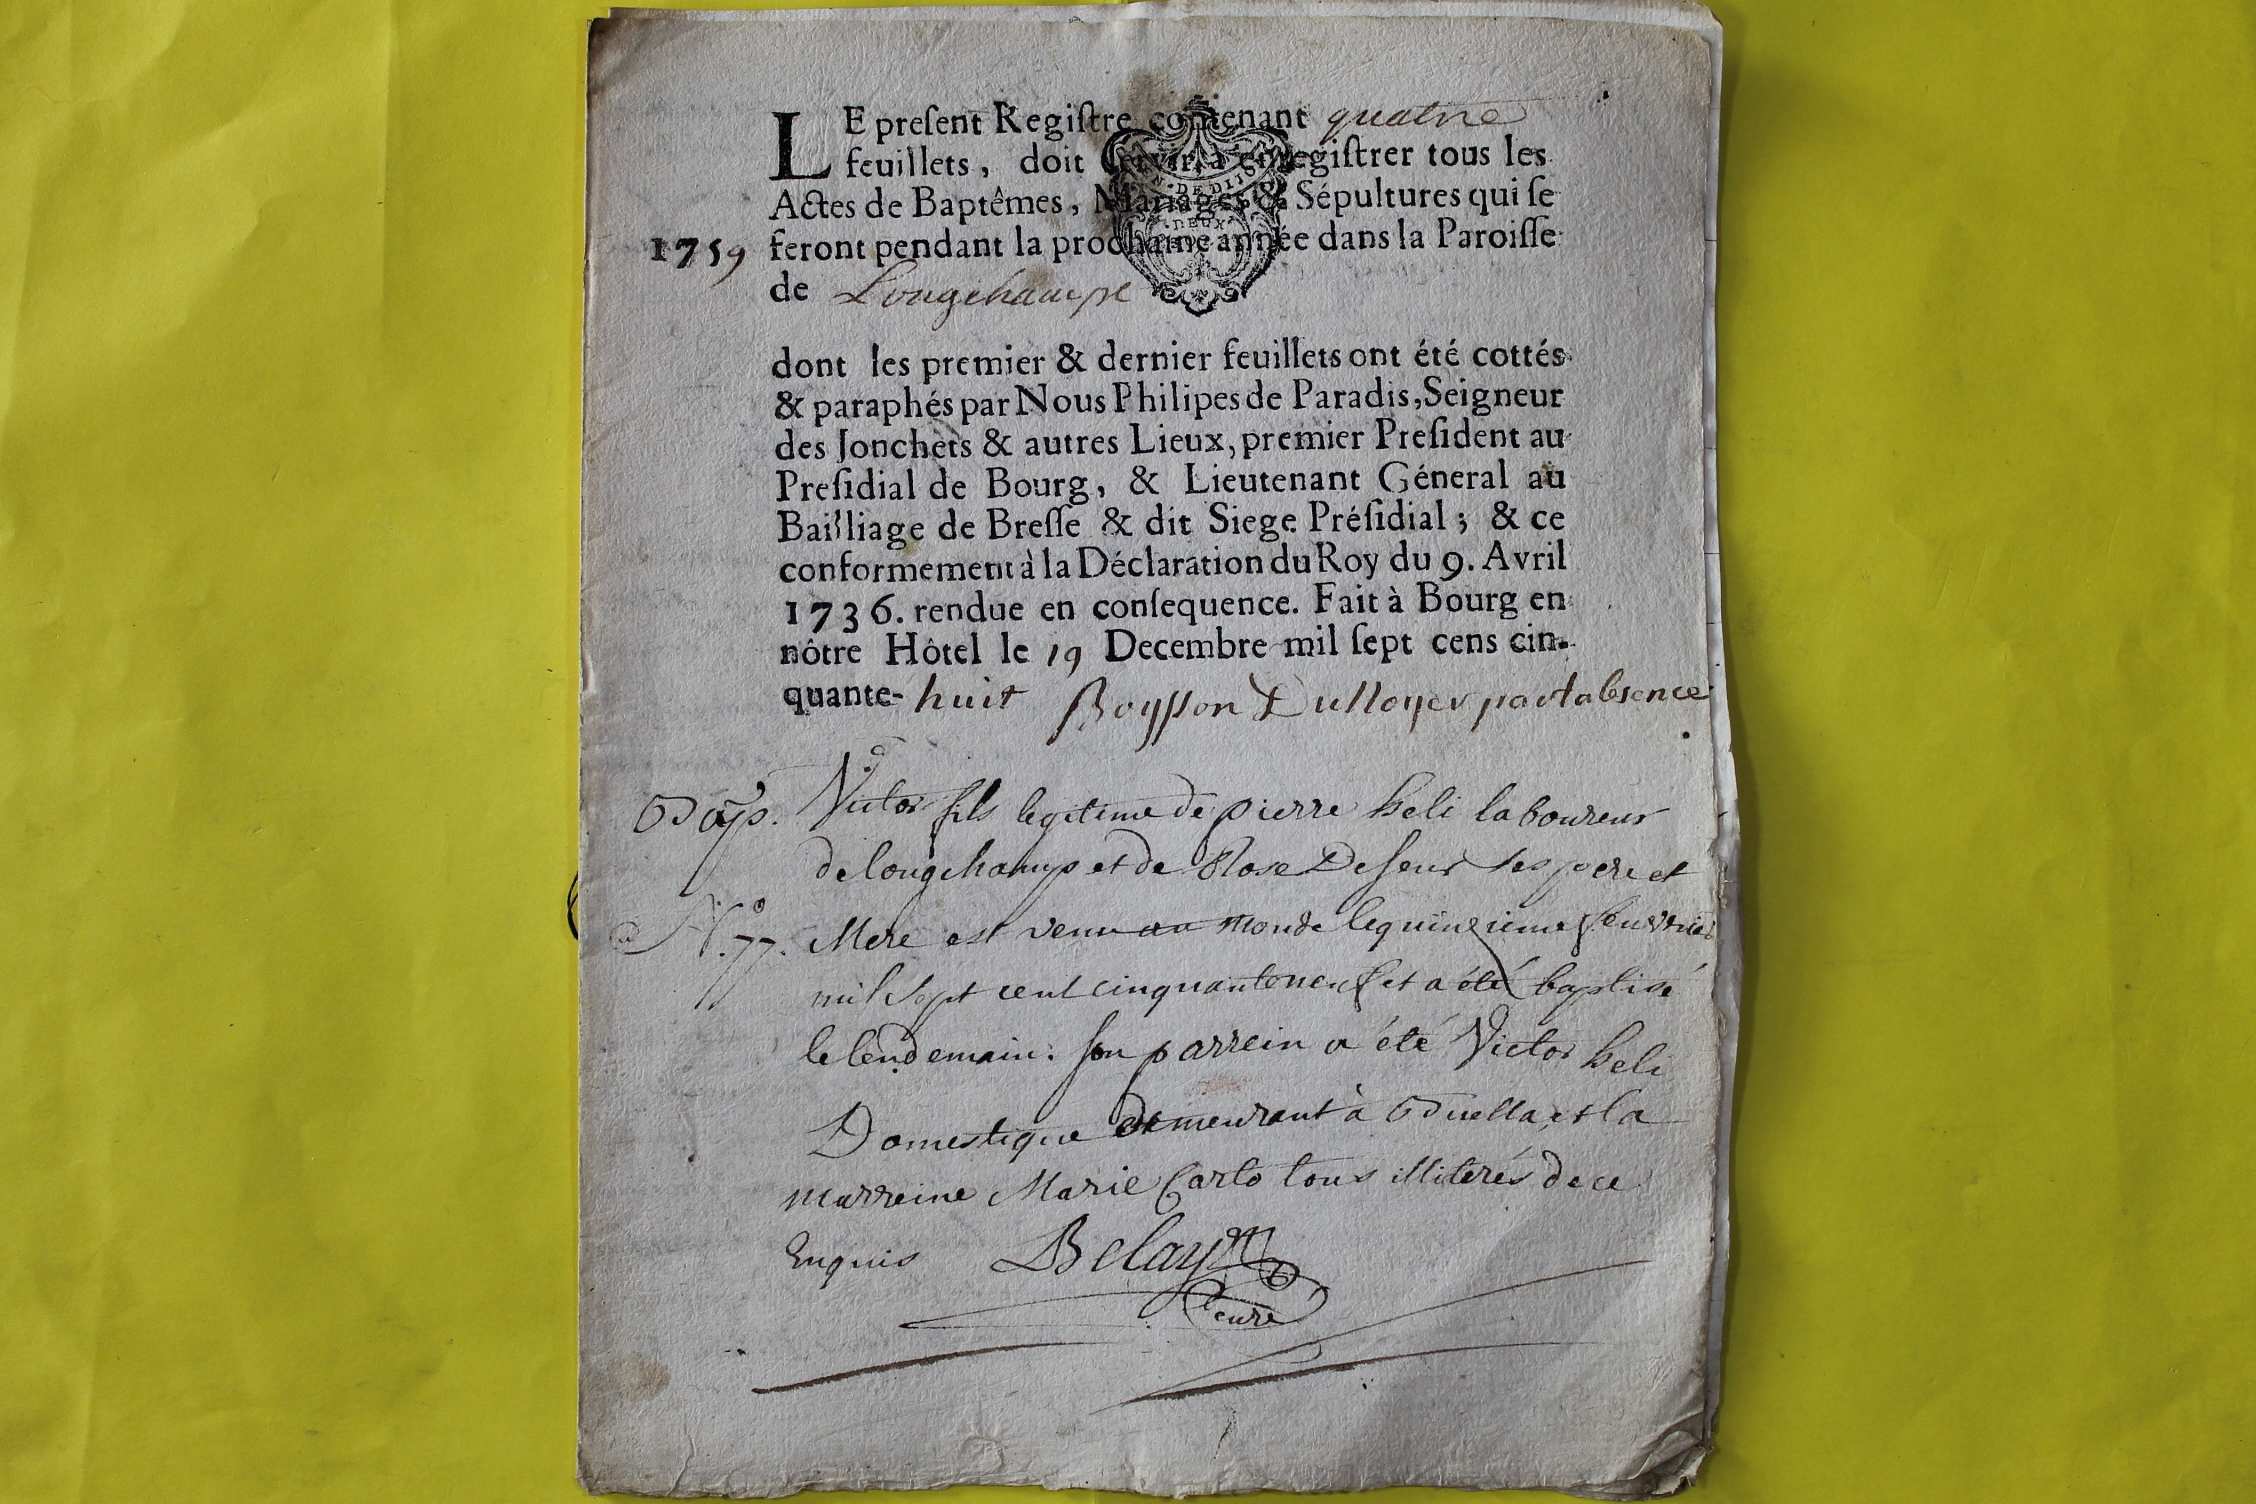 LE preſent Regiſtre contenant quatre
feuillets, doit ſervir à enregiſtrer tous les
Actes de Baptêmes, Mariages & Sépultures qui ſe
1759 feront pendant la prochaine année dans la Paroiſſe
de Longchamps
N. DE DIJON
DEUX
dont les premier & dernier feuillets ont été cottés
& paraphés par Nous Philipes de Paradis, Seigneur
des Jonchets & autres Lieux, premier Preſident au
Preſidial de Bourg, & Lieutenant Géneral au
Bailliage de Breſſe & dit Siege Préſidial; & ce
conformement à la Déclaration du Roy du 9. Avril
1736. rendue en conſequence. Fait à Bourg en
nôtre Hôtel le 19 Decembre mil ſept cens cin-
quante-huit par l'absence
Bap. Victor fils legitime de pierre heli laboureur
de longchamp et de Rose ses pere et
N.° 77. Mere est venu au monde le quinzieme fevrier
mil sept cent cinquante neuf et a été baptisé
le lendemain. son parrein a été Victor heli
Domestique demeurant à et la
marreine Marie Carlo tous illiterés de ce
Enquis Belay
curé